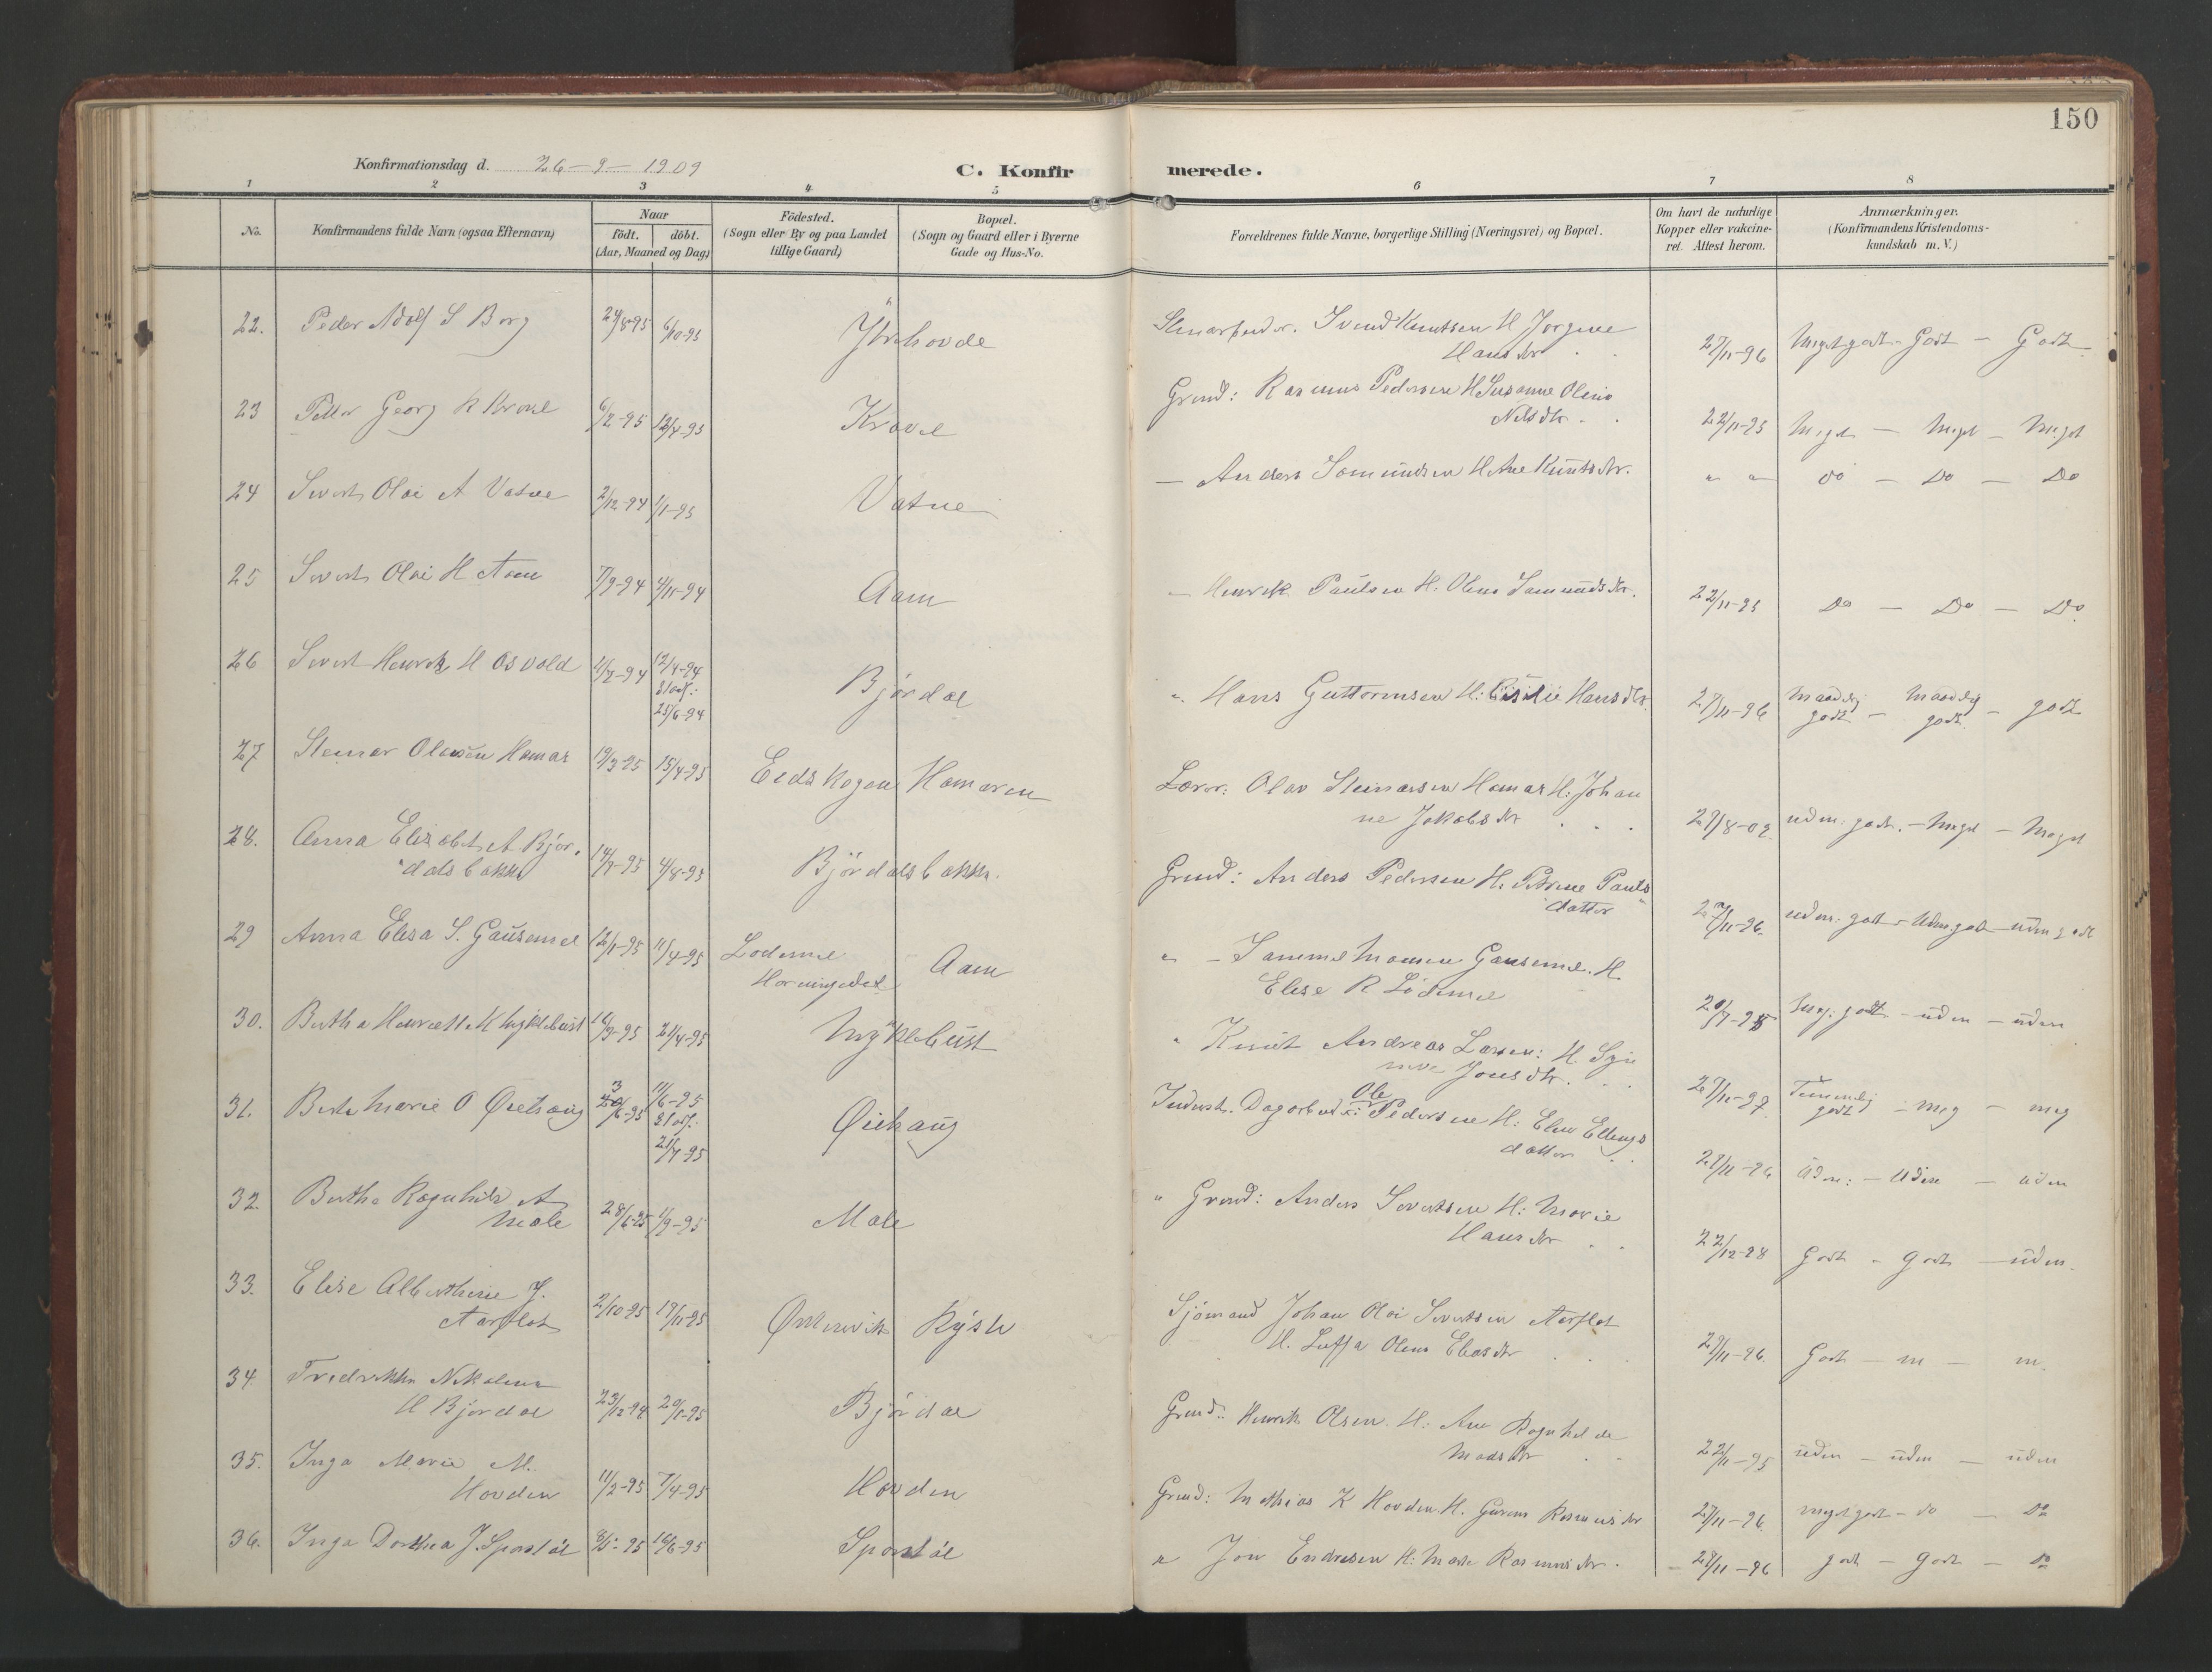 150
Konfirmationsdag d. 26-9-1909
C. Konfir merede.
1 2 3 4 5 6 7 8
No.
Konfirmandens fulde Navn (ogsaa Efternavn)
Naar
født. døbt.
(Aar, Maaned og Dag)
Fødested.
(Sogn eller By og paa Landet
tillige Gaard)
Bopæl.
(Sogn og Gaard eller i Byerne
Gade og Hus-No.
Forældrenes fulde Navne, borgerlige Stilling (Næringsvei) og Bopæl.
Om havt de naturlige
Kopper eller vakcine-
ret. Attest herom.
Anmærkninger.
(Konfirmandens Kristendoms-
kundskab m. V.)
22. Peder Adolf S Borg 6/10-95 Ytrehovde Svend Knutsen H Jørgine
Hansdtr 27/11-96 Meget godt - Godt - Godt
23 Petter Georg R Krovel 6/2-95 12/4-95 Krovel Grmd: Rasmus Pedersen H Susanne Oline
Nilsdtr. 22/11-95 Meget - Meget - Meget
24 Sivert Olai A Vatne 2/12-94 1/1-95 Vatne - Anders Samundsen H Ane Knutsdtr. " " Do - Do - Do
25 Sivert Olai H Aam 7/9-94 4/11-94 Aam - Henrik Paulsen H. Olene Samundsdtr. 22/11-95 Do - Do - Do.
26 Sivert Henrik H Osvold 12/4-94
Stadf.
25/6-94 Bjørdal ". Hans Guttormsen H: Hansdtr. 27/11-96 Maadelig
godt - Maadelig
godt - godt
27 Steinar Olavsen Hamar 19/3-95 15/4-95 Hamaren Lærer: Olav Steinarsen Hamar H: Johan
ne Jakobsdtr 29/8-02 - Meget - Meget
28. Anna Elisabet A Bjør-
dalsbakke 4/8-95 Bjørdalsbakke. Grmd: Anders Pedersen H. Petrine Pauls
datter 27/11-96.
29 Anna Elisa S. Gausemel 12/1-95 11/4-95 Aam " - Gausemel. H.
Elise R
30. Bertha Henriette K Myklebust 21/4-95 Myklebust " Knut Andreas Larsen: H. Syn
nøve Jonsdtr. 27/11-97. Temmelig
godt - meg - meg
31. Berte Marie O Øiehaug 3/6-95 11/6-95
Stadf:
21/7-95 Øiehaug Ole Pedersen H: Elen Ellings
datter 27/11-96 Uden: - Uden - uden
32. Bertha Ragnhild A
Mole 28/6-95 1/9-95 Mole " Grmd: Anders Sivertsen H: Marie
Hansdtr 22/12-98 Godt - godt - uden.
33. Elise Albertine J.
Aarflot 2/10-95 17/11-95 Ørstenvik Rysté Sjømand Johan Olai Sivertsen Aarflot
H. Olene Eliasdtr 27/11-96. Godt - m - m.
34 Fredrikke Nikoline
H Bjørdal 23/12-94 20/1-95 Bjørdal Grmd: Henrik Olsen. H: Ane Ragnhilde
Madsdtr 22/11-95 uden - uden - uden
35. Inga Marie M.
Hovden 11/2-95 7/4-95 Hovden Grmd: Mathias K Hovden H. Rasmusdtr 27/11-96. meget godt - do - Do
36. Inga Dorthea J. Sporstøl 8/5-95 16/6-95 Sporstøl " Jon Endresen H: Rasmusdtr. - 27/11-96 godt - godt - Do